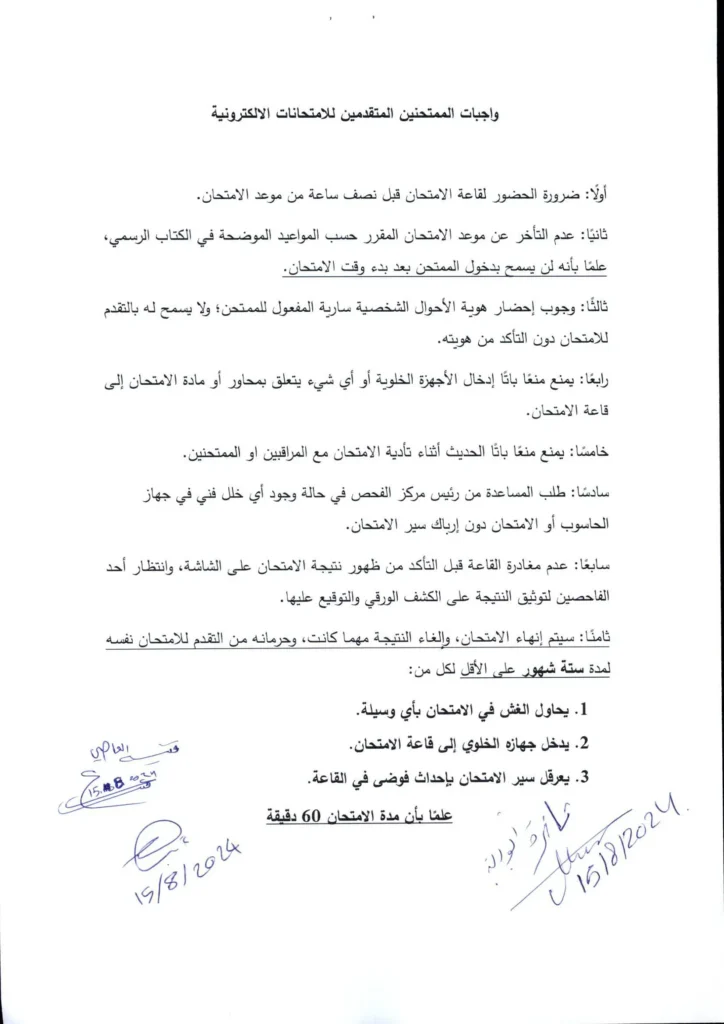 واجبات الممتحنين المتقدمين للامتحانات الالكترونية
أولًا: ضرورة الحضور لقاعة الامتحان قبل نصف ساعة من موعد الامتحان.
ثانيًا: عدم التأخر عن موعد الامتحان المقرر حسب المواعيد الموضحة في الكتاب الرسمي،
علمًا بأنه لن يسمح بدخول الممتحن بعد بدء وقت الامتحان.
ثالثًا: وجوب إحضار هوية الأحوال الشخصية سارية المفعول للممتحن؛ ولا يسمح له بالتقدم
للامتحان دون التأكد من هويته.
رابعًا: يمنع منعًا باتًا إدخال الأجهزة الخلوية أو أي شيء يتعلق بمحاور أو مادة الامتحان إلى
قاعة الامتحان.
خامسًا: يمنع منعًا باتًا الحديث أثناء تأدية الامتحان مع المراقبين او الممتحنين.
سادسًا: طلب المساعدة من رئيس مركز الفحص في حالة وجود أي خلل فني في جهاز
الحاسوب أو الامتحان دون إرباك سير الامتحان.
سابعًا: عدم مغادرة القاعة قبل التأكد من ظهور نتيجة الامتحان على الشاشة، وانتظار أحد
الفاحصين لتوثيق النتيجة على الكشف الورقي والتوقيع عليها.
ثامنًا: سيتم إنهاء الامتحان، وإلغاء النتيجة مهما كانت، وحرمانه من التقدم للامتحان نفسه
لمدة ستة شهور على الأقل لكل من:
1. يحاول الغش في الامتحان بأي وسيلة.
2. يدخل جهازه الخلوي إلى قاعة الامتحان.
3. يعرقل سير الامتحان بإحداث فوضى في القاعة.
علمًا بأن مدة الامتحان 60 دقيقة
15/8/2024
15/8/2024